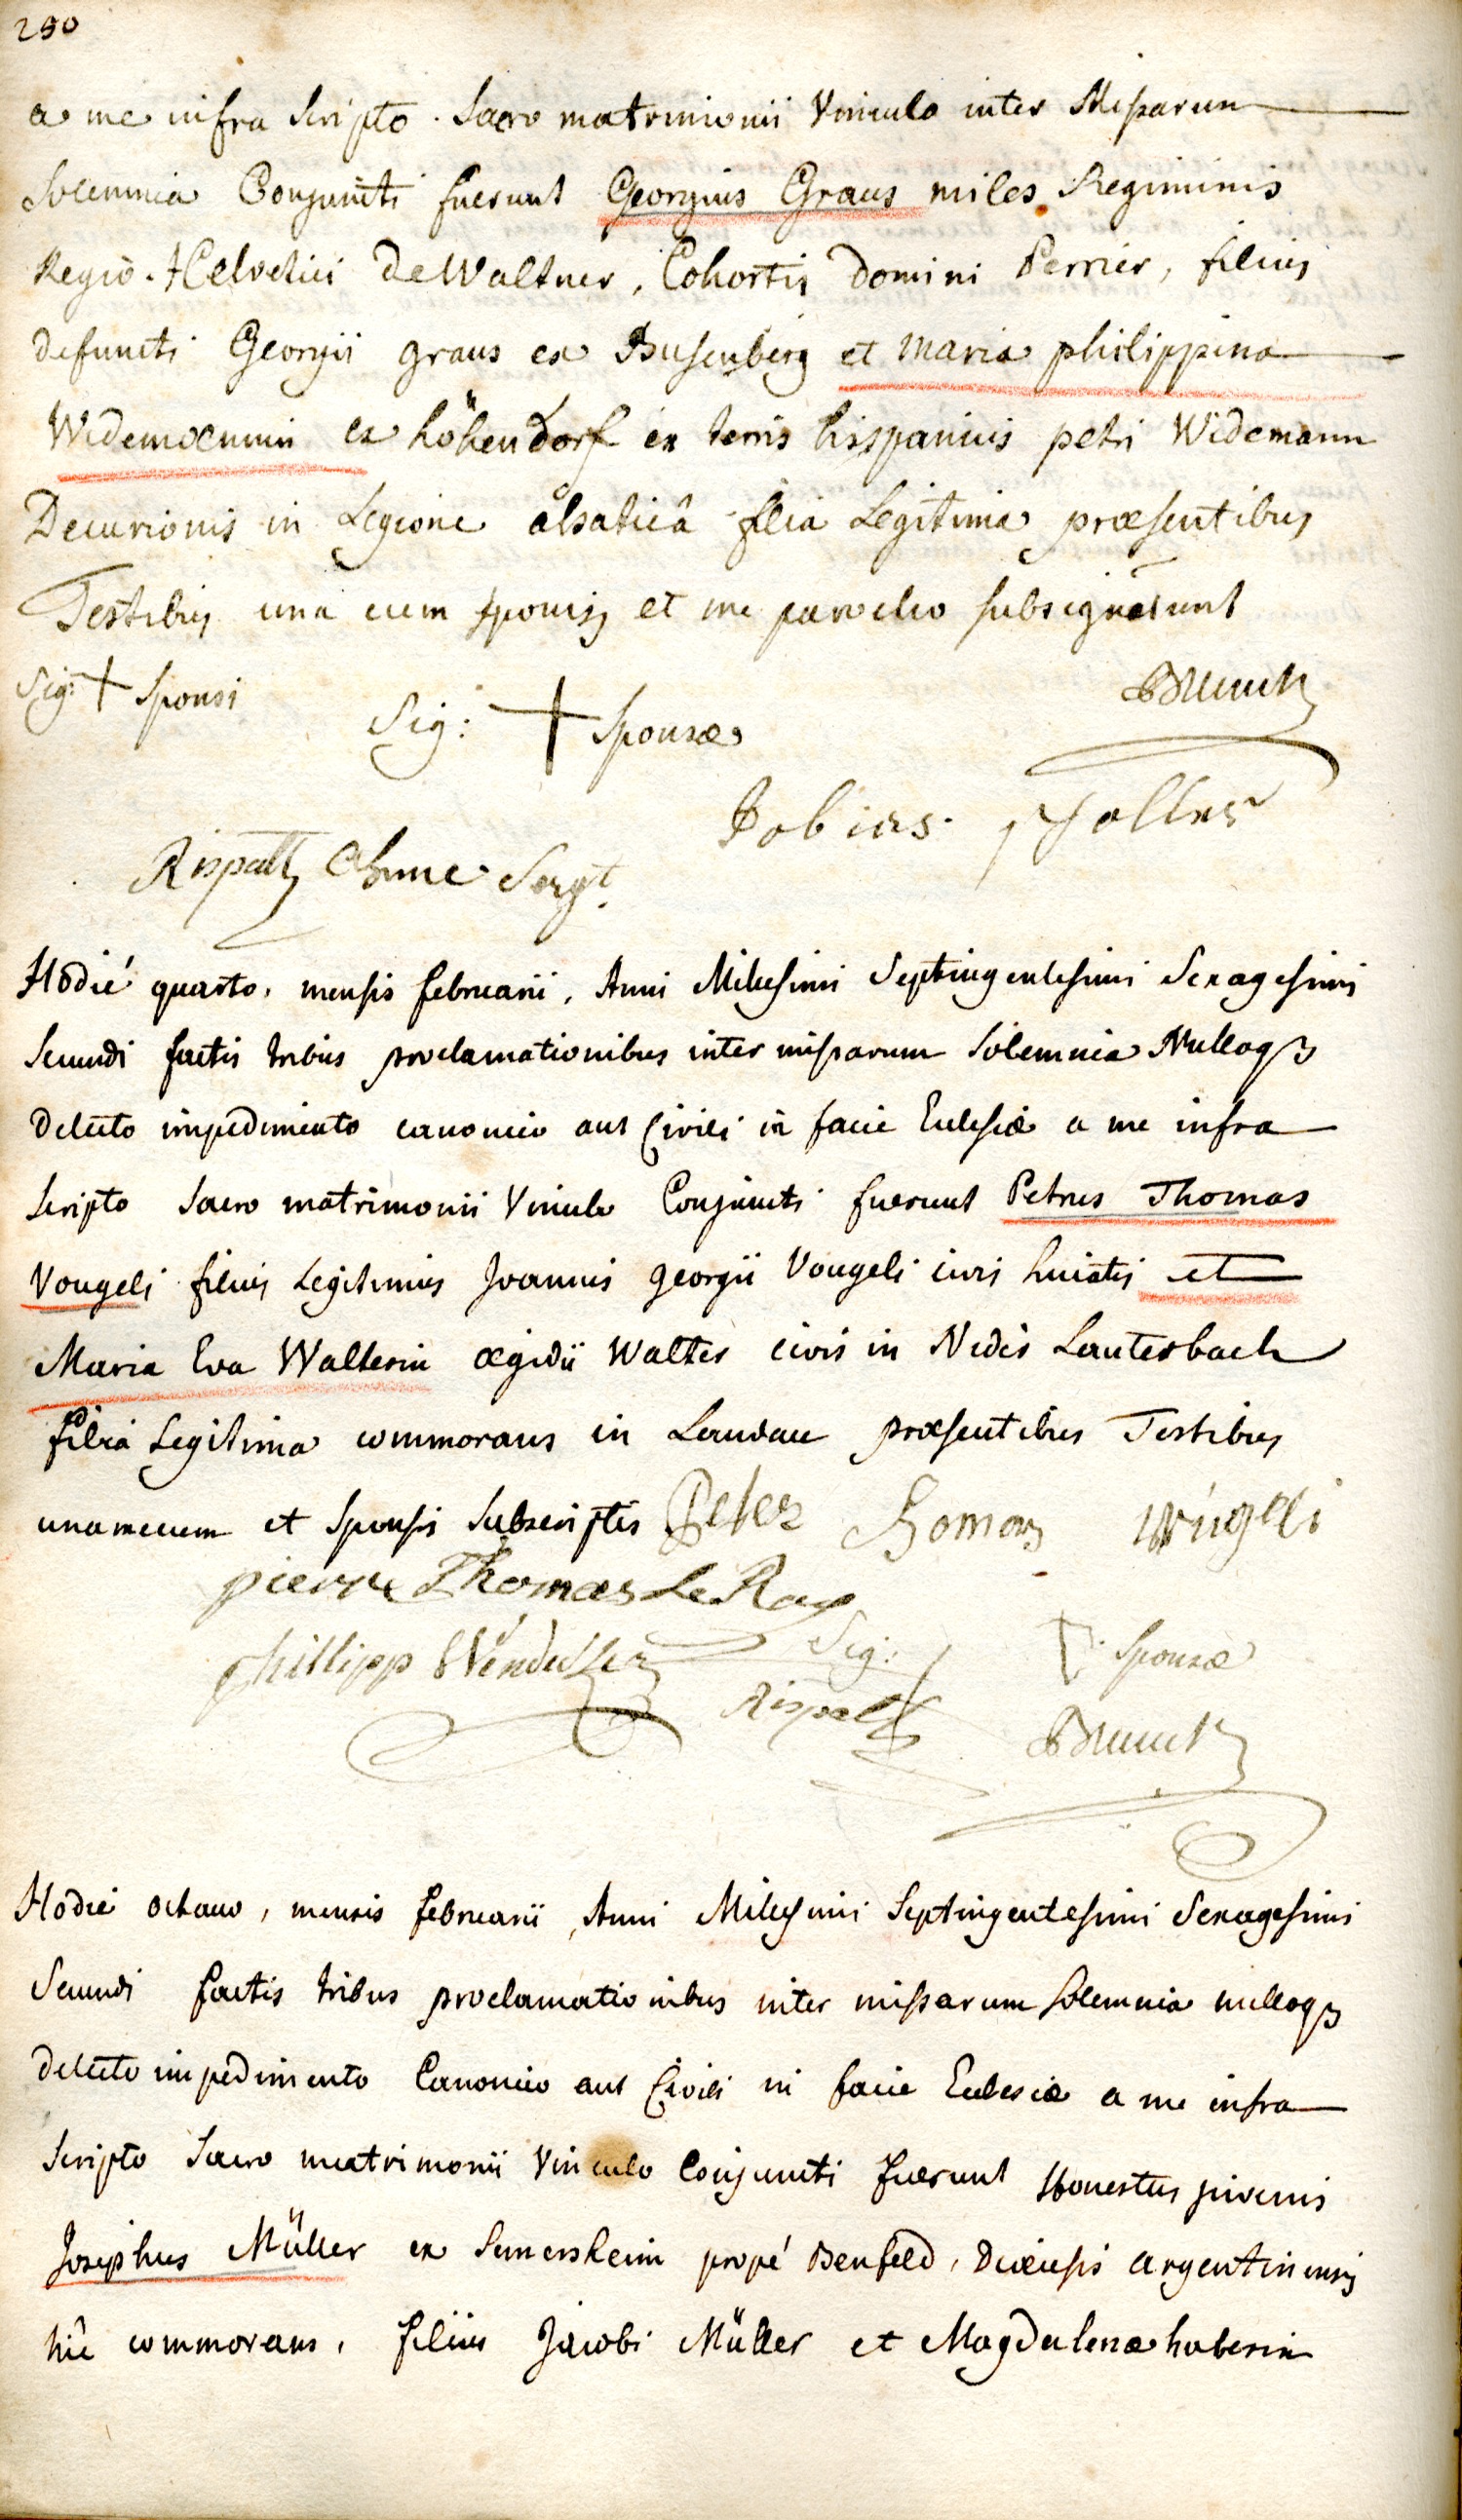 290
a me infra scripto Sacro matrimonii Vinculo inter Missarum
Solemnia Conjuncti fuerunt Georgius Graus miles Regiminis
Regio-Helvetici de Waltner, Cohortis Domini Perrier, filius
defuncti Georgii graus ex Busenberg et maria philippina
Widemaennin ex höhendorf ex terris hispanicis petri Widemann
Decurionis in Legione alsaticâ filia Legitima præsentibus
Testibus una cum sponsis et me parocho subsignârunt
Sig: + Sponsi
Sig: + Sponsæ
Brunck
Tobias
Rispalts Sergt.
Hodié quarto, mensis februarii, Anni Millesimi Septingentesimi Sexagesimi
Secundi factis tribus proclamationibus inter missarum Solemnia Nulloq3
Detecto impedimento canonico aut Civili in facie Ecclesiæ a me infra
scripto sacro matrimonii Vinculo Conjuncti fuerunt Petrus Thomas
Vougeli filius Legitimus Joannis georgii Vougeli civis huiatis et
Maria Eva Walterin ægidii Walter civis in Nider Lauterbach
filia Legitima commorans in Landau præsentibus Testibus
unamecum et Sponsis Subscriptis Peter Homas
pierre Thomas Le Roy
Sig: Sponsæ
phillipp
Rispalts
Brunck
Hodie octavo, mensis februarii, Anni Millesimi Septingentesimi Sexagesimi
Secundi factis tribus proclamationibus inter missarum solemnia nulloq3
detecto impedimento Canonico aut Civili in facie Ecclesiæ a me infra
scripto Sacro matrimonii Vinculo Conjuncti fuerunt Honestus juvenis
Josephus Müller ex Semersheim propé Benfeld, Diœcesis argentinensis
hîc commorans, filius Jacobi Müller et Magdalenæ haberin